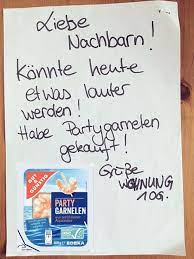 Liebe
Nachbarn!
Könnte heute
etwas lauter
werden!
Habe Partygarnelen
gekauft!
Grüße
WOHNUNG
106.
GUT
GÜNSTIG
PARTY
GARNELEN
EDEKA